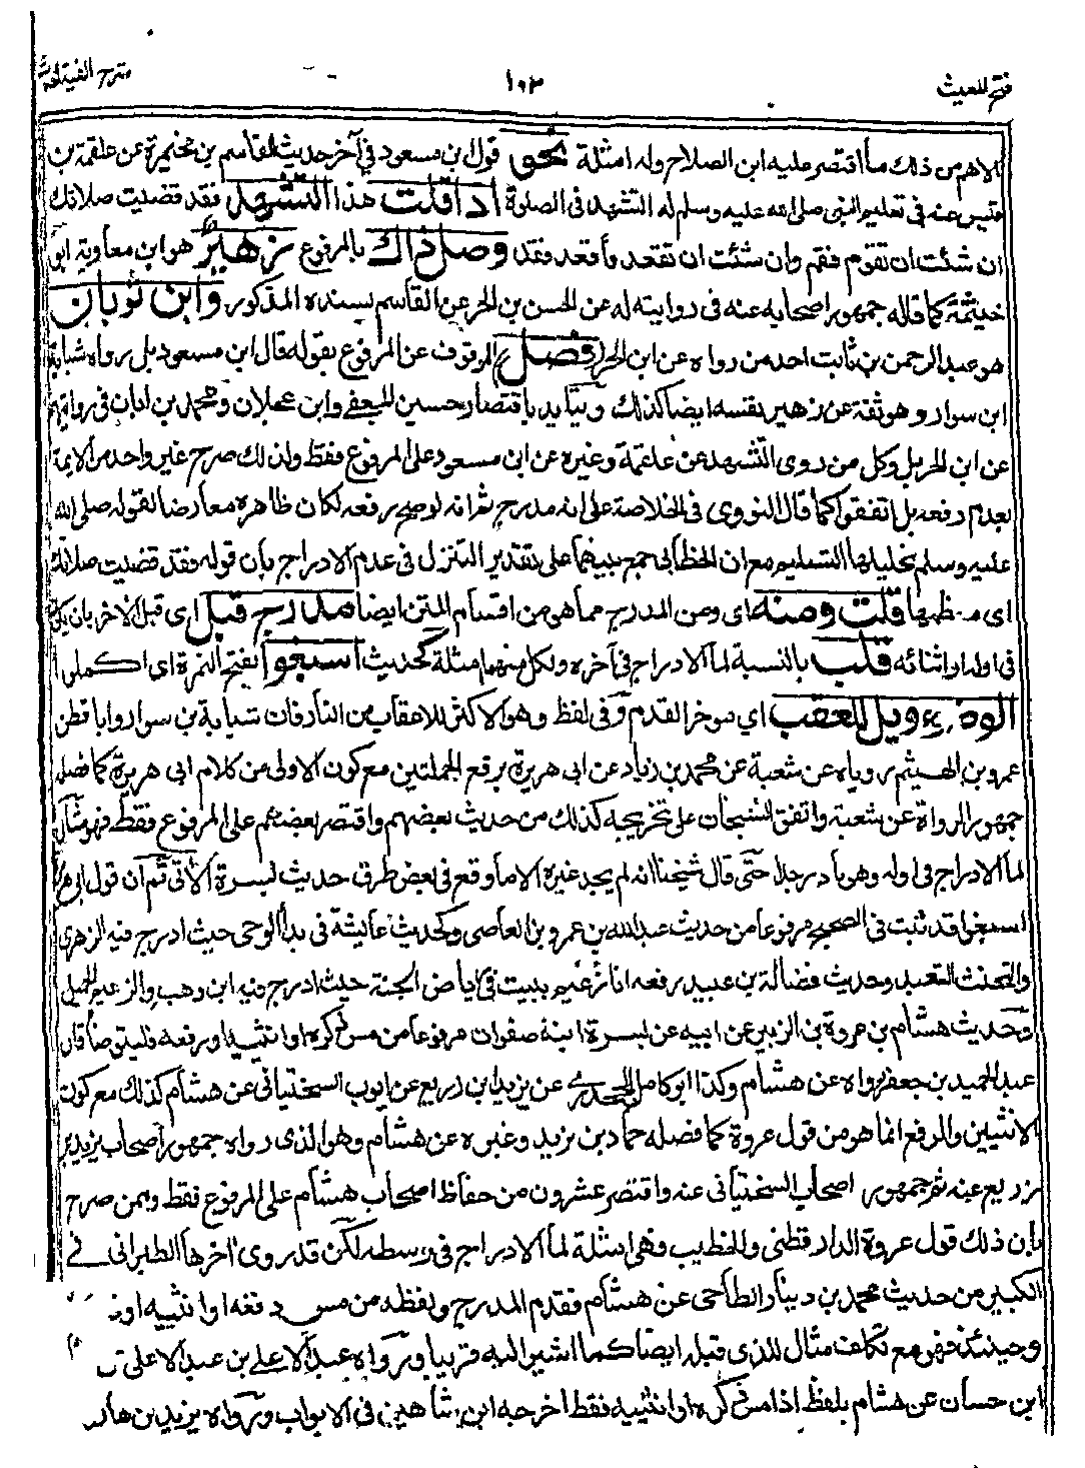 فتح المغيث
١٠٣
شرح الفية الحديث
الاهم من ذلك ما اقتصر عليه ابن الصلاح وله امثلة نحو قول ابن مسعود في آخر حديث القاسم بن مخيمرة عن علقمة بن
قيس عنه في تعليم النبي صلى الله عليه وسلم له التشهد في الصلوة اذا قلت هذا التشهد فقد قضيت صلاتك
ان شئت ان تقوم فقم وان شئت ان تقعد فاقعد فقد وصل ذاك بالمرفوع زهير هو ابن معاوية ابو
خيثمة كما قاله جمهور اصحابه عنه في روايته له عن الحسن بن الحر عن القاسم بسنده المذكور وابن ثوبان
هو عبد الرحمن بن ثابت احد من رواه عن ابن الحر فصل الموقوف عن المرفوع بقوله قال ابن مسعود بل رواه شبابة
ابن سوار وهو ثقة عن زهير نفسه ايضا كذلك ويتأيد باقتصار حسين الجعفي وابن عجلان ومحمد بن ابان في روايتهم
عن ابن الحر بل وكل من روى التشهد عن علقمة وغيره عن ابن مسعود على المرفوع فقط ولذلك صرح غير واحد من الايمة
بعدم رفعه بل اتفقوا كما قال النووي في الخلاصة على انه مدرج ثم انه لو صح رفعه لكان ظاهره معارضا لقوله صلى الله
عليه وسلم تحليلها التسليم مع ان الخطابي جمع بينهما على تقدير التنزل في عدم الادراج بان قوله فقد قضيت صلاتك
اي معظمها قلت ومنه اي ومن المدرج مما هو من اقسام المتن ايضا مدرج قبل اي قبل الاخر بان يكون
في اوله او اثنائه قلب بالنسبة لما الادراج في آخره ولكل منهما امثلة كحديث اسبغوا بفتح الهمزة اي اكملوا
الوضوء ويل للعقب اي موخر القدم وفي لفظ وهو الاكثر للاعقاب من النار فان شبابة بن سوار وابا قطن
عمرو بن الهيثم روياه عن شعبة عن محمد بن زياد عن ابي هريرة برفع الجملتين مع كون الاولى من كلام ابي هريرة كما فصله
جمهور الرواة عن شعبة واتفق الشيخان على تخريجه كذلك من حديث بعضهم واقتصر بعضهم على المرفوع فقط فهو مثال
لما الادراج في اوله وهو نادر جدا حتى قال شيخنا انه لم يجد غيره الا ما وقع في بعض طرق حديث بسرة الآتي ثم ان قول ابي هريرة
اسبغوا قد ثبت في الصحيح مرفوعا من حديث عبد الله بن عمرو بن العاصي وكحديث عائشة في بدأ الوحي حيث ادرج فيه الزهري
والتحنث التعبد وحديث فضالة بن عبيد رفعه انا زعيم ببيت في رياض الجنة حيث ادرج فيه ابن وهب والزعيم الحميل
وحديث هشام بن عروة بن الزبير عن ابيه عن بسرة ابنة صفوان مرفوعا من مس ذكره او انثييه او رفغه فليتوضأ فان
عبد الحميد بن جعفر رواه عن هشام وكذا ابو كامل الجحدري عن يزيد بن زريع عن ايوب السختياني عن هشام كذلك مع كون
الانثيين والرفغ انما هو من قول عروة كما فصله حماد بن يزيد وغيره عن هشام وهو الذي رواه جمهور اصحاب يزيد بن
زريع عنه ثم جمهور اصحاب السختياني عنه واقتصر عشرون من حفاظ اصحاب هشام على المرفوع فقط وممن صرح
بان ذلك قول عروة الدارقطني والخطيب وهي امثلة لما الادراج في وسطه لكن قد روى اخرها الطبراني في
الكبير من حديث محمد بن دينار الطاحي عن هشام فقدم المدرج ولفظه من مس رفغه او انثييه او ذ
وحينئذ فهو مع تكلف مثال للذي قبله ايضا كما اشير اليه قريبا ورواه عبد الاعلى بن عبد الاعلى
ابن حسان عن هشام بلفظ اذا مس ذكره او انثييه فقط اخرجه ابن شاهين في الابواب ورواه يزيد بن هار